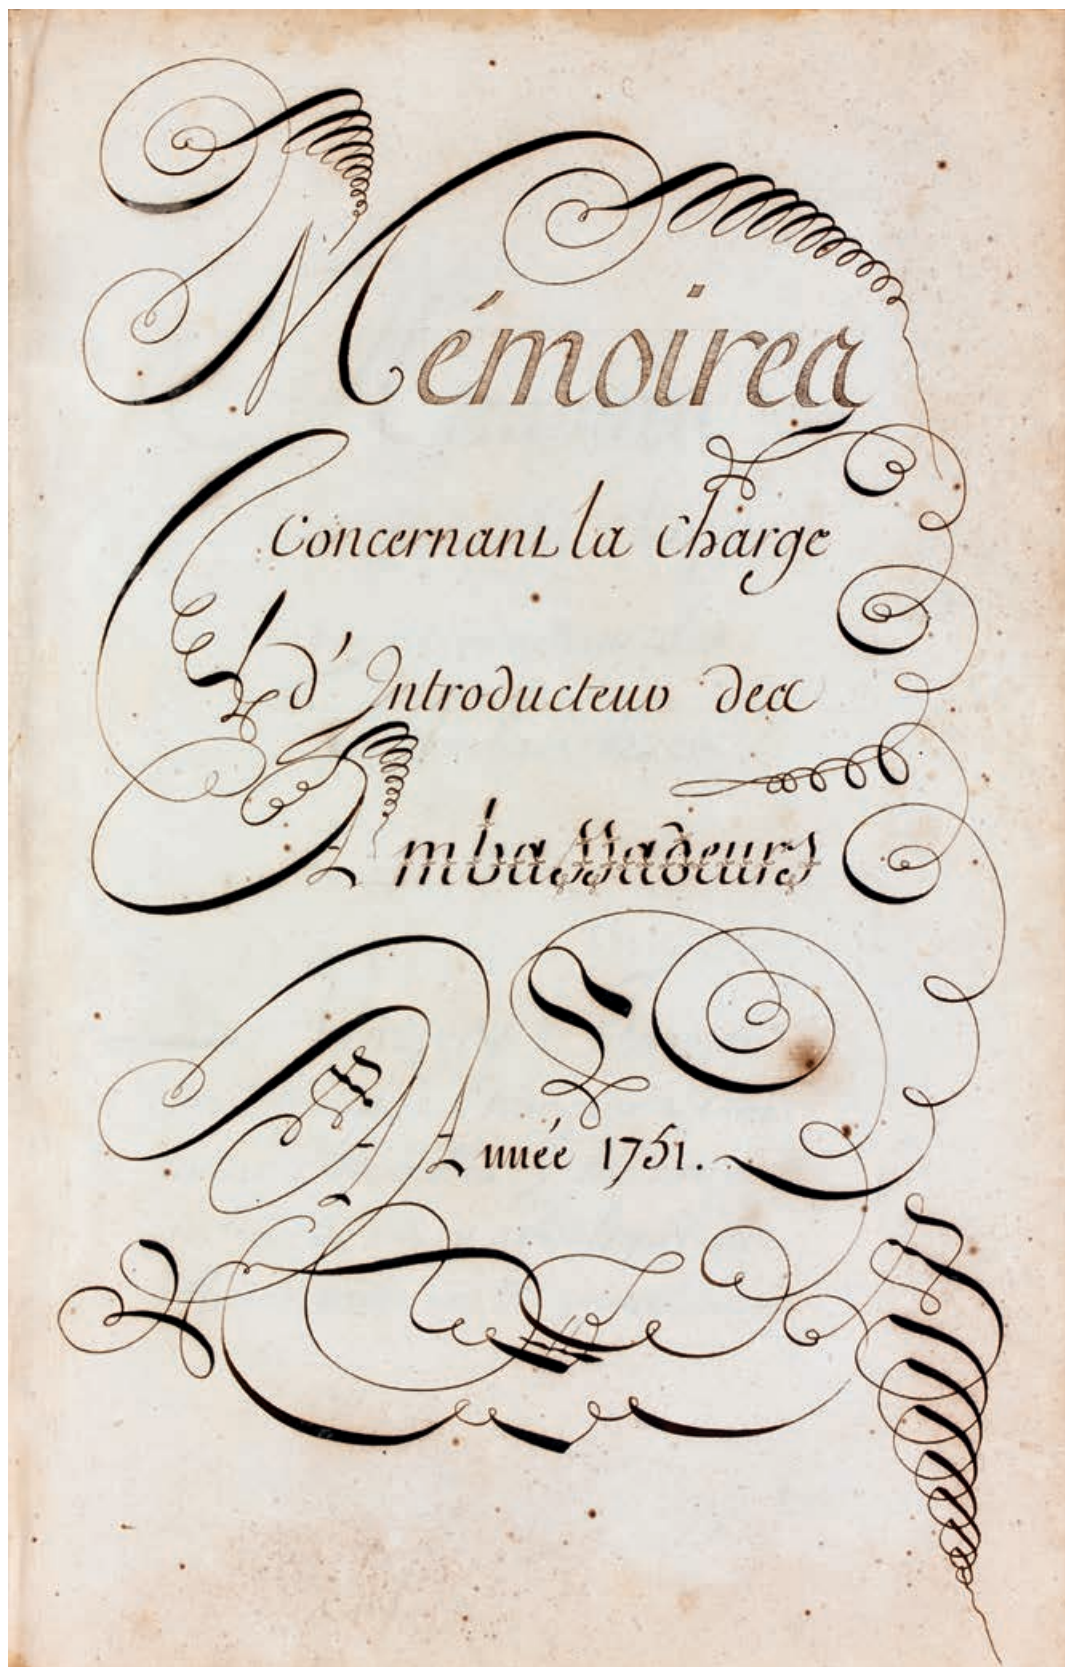 Mémoires
Concernant la Charge
d'Introducteur des
Ambassadeurs
Année 1751.